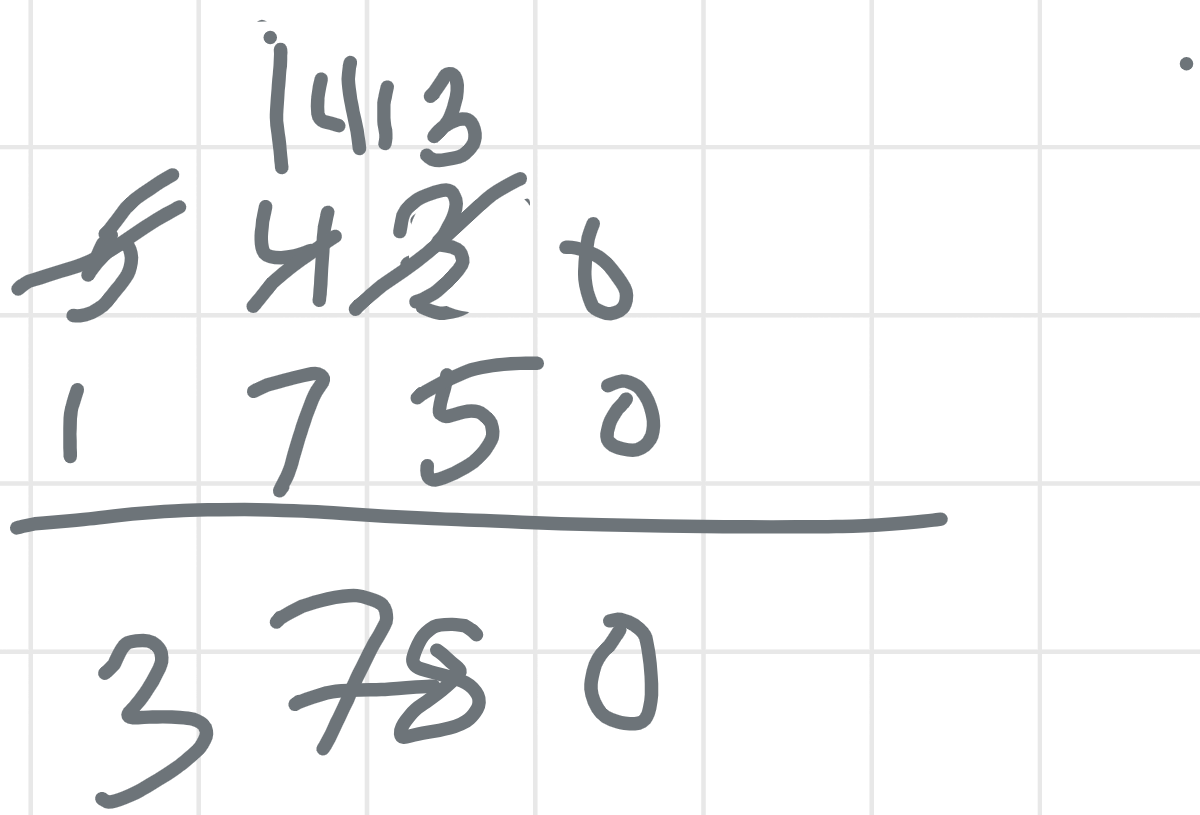 1413
5 4 3 0
1 7 5 0
3 7 8 0